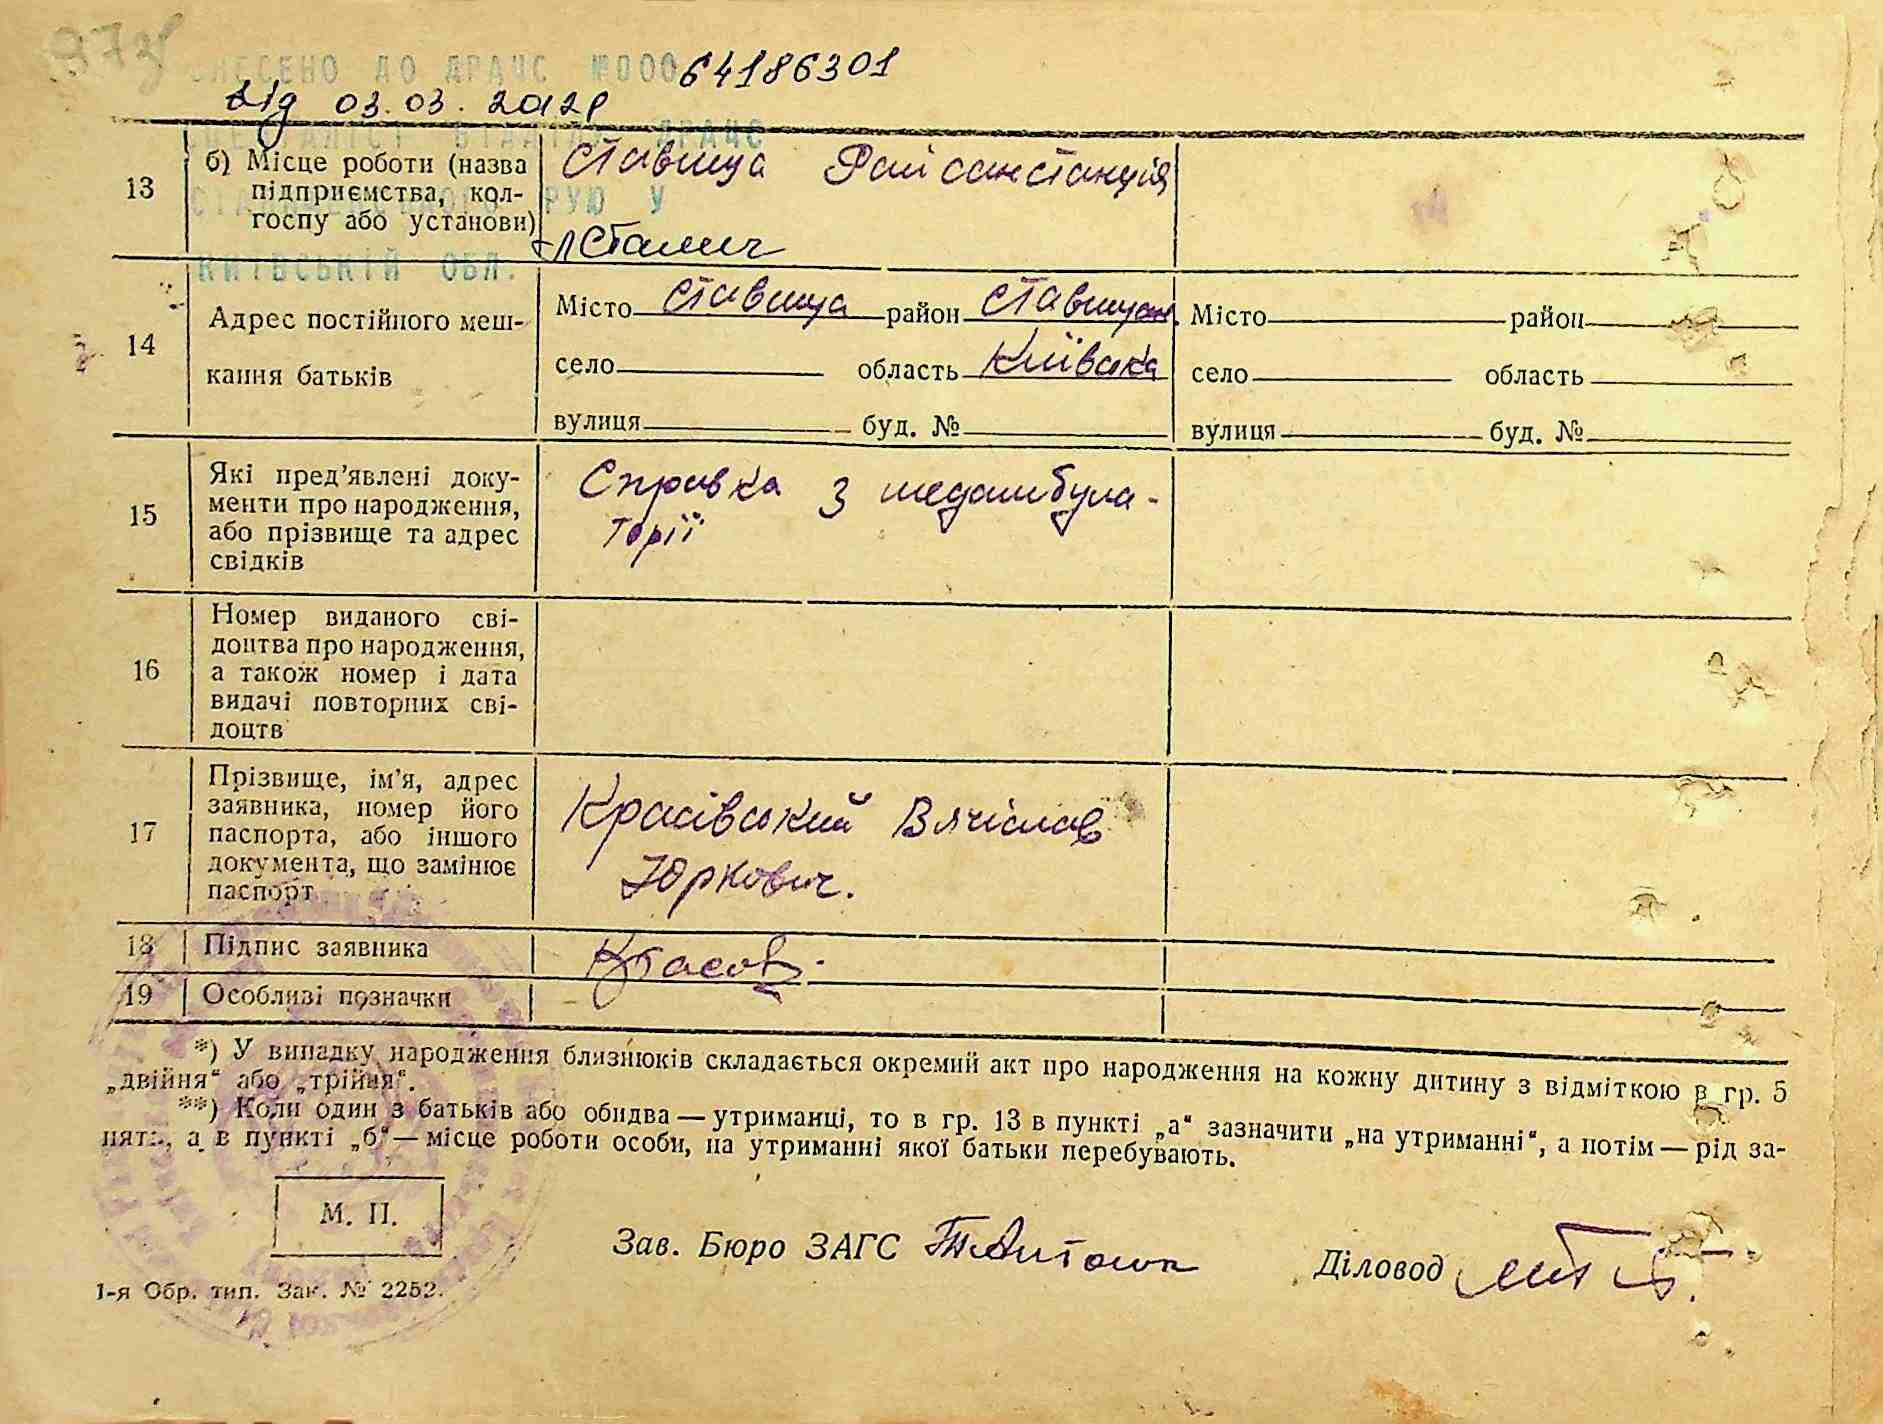 ВНЕСЕНО ДО ДРАЦС №000 64186301
від 03.03.2012р
ВІДДІЛ ДРАЦС
РУЮ У
КИЇВСЬКІЙ ОБЛ.
13 б) Місце роботи (назва підприємства, колгоспу або установи) Ставища Райсанстанція
14 Адрес постійного меш-
кання батьків
Місто Ставища район Ставищан.
село область Київська
вулиця буд. №
Місто район
село область
вулиця буд. №
15 Які пред'явлені доку-
менти про народження,
або прізвище та адрес
свідків
Справка з медамбула-
торії
16 Номер виданого сві-
доцтва про народження,
а також номер і дата
видачі повторних сві-
доцтв
17 Прізвище, ім'я, адрес
заявника, номер його
паспорта, або іншого
документа, що замінює
паспорт
Красівський Вячіслав
Юркович.
18 Підпис заявника
19 Особливі позначки
*) У випадку народження близнюків складається окремий акт про народження на кожну дитину з відміткою в гр. 5
„двійня“ або „трійня“.
**) Коли один з батьків або обидва — утриманці, то в гр. 13 в пункті „а“ зазначити „на утриманні“, а потім — рід за-
нять, а в пункті „б“ — місце роботи особи, на утриманні якої батьки перебувають.
М. П.
Зав. Бюро ЗАГС
Діловод
1-я Обр. тип. Зак. № 2252.